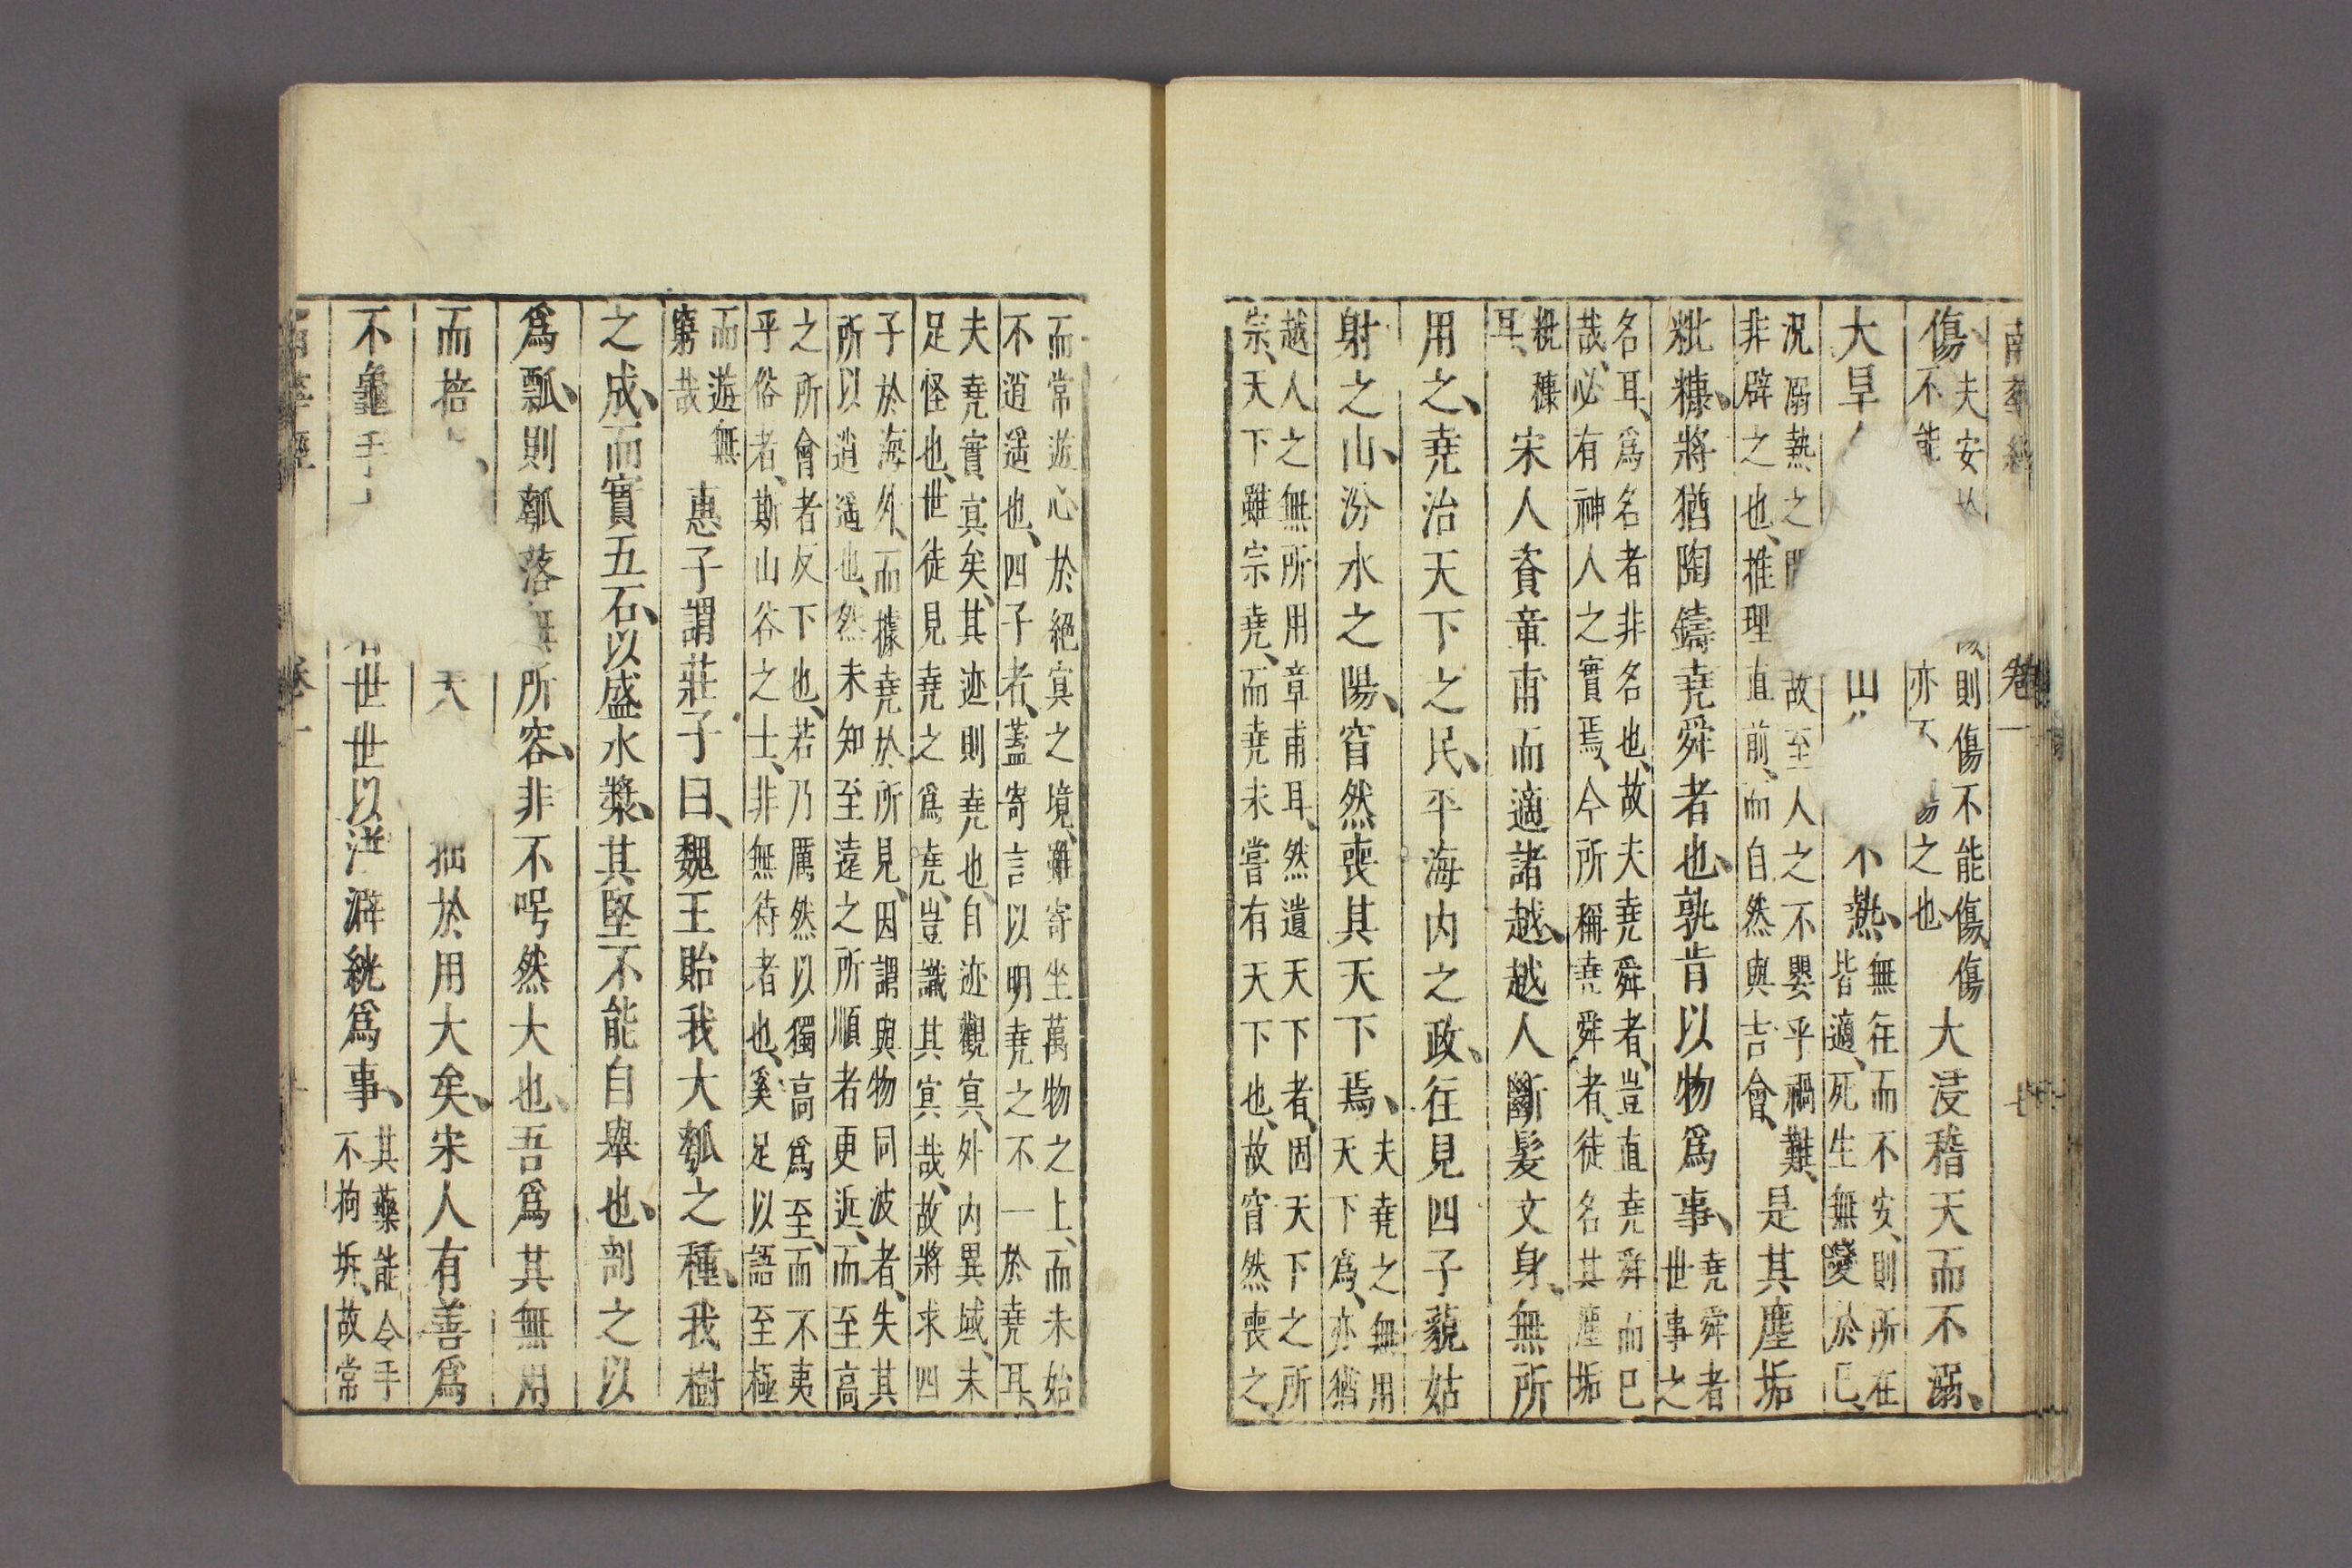 南華經 卷一 七
傷 夫安 則傷不能傷傷
不能 亦不 傷之也 大浸稽天而不溺、
大旱 山 不熱、無往而不安、則所在
皆適、死生無變於己、
況溺熱之間 故至人之不嬰乎禍難、
非辟之也、推理直前、而自然與吉會、是其塵垢
粃糠、將猶陶鑄堯舜者也、孰肯以物爲事、堯舜者
世事之
名耳、爲名者非名也、故夫堯舜者、豈直堯舜而已
哉、必有神人之實焉、今所稱堯舜者、徒名其塵垢
粃糠
耳、宋人資章甫而適諸越、越人斷髮文身、無所
用之、堯治天下之民、平海內之政、往見四子藐姑
射之山、汾水之陽、窅然喪其天下焉、夫堯之無用
天下爲、亦猶
越人之無所用章甫耳、然遺天下者、固天下之所
宗、天下雖宗堯、而堯未嘗有天下也、故窅然喪之、
而常遊心於絕冥之境、雖寄坐萬物之上、而未始
不逍遥也、四子者、蓋寄言以明堯之不一於堯耳、
夫堯實冥矣、其迹則堯也、自迹觀冥、外內異域、未
足怪也、世徒見堯之爲堯、豈識其冥哉、故將求四
子於海外、而據堯於所見、因謂與物同波者、失其
所以逍遥也、然未知至遠之所順者更近、而至高
之所會者反下也、若乃厲然以獨高爲至、而不夷
乎俗者、斯山谷之士、非無待者也、奚足以語至極
而遊無
窮哉 惠子謂莊子曰、魏王貽我大瓠之種、我樹
之成、而實五石、以盛水漿、其堅不能自舉也、剖之以
爲瓢、則瓠落無所容、非不呺然大也、吾爲其無用
而掊 夫 拙於用大矣、宋人有善爲
不龜手 世世以洴澼絖爲事、其藥能令手
不拘坼、故常
南華經 卷一